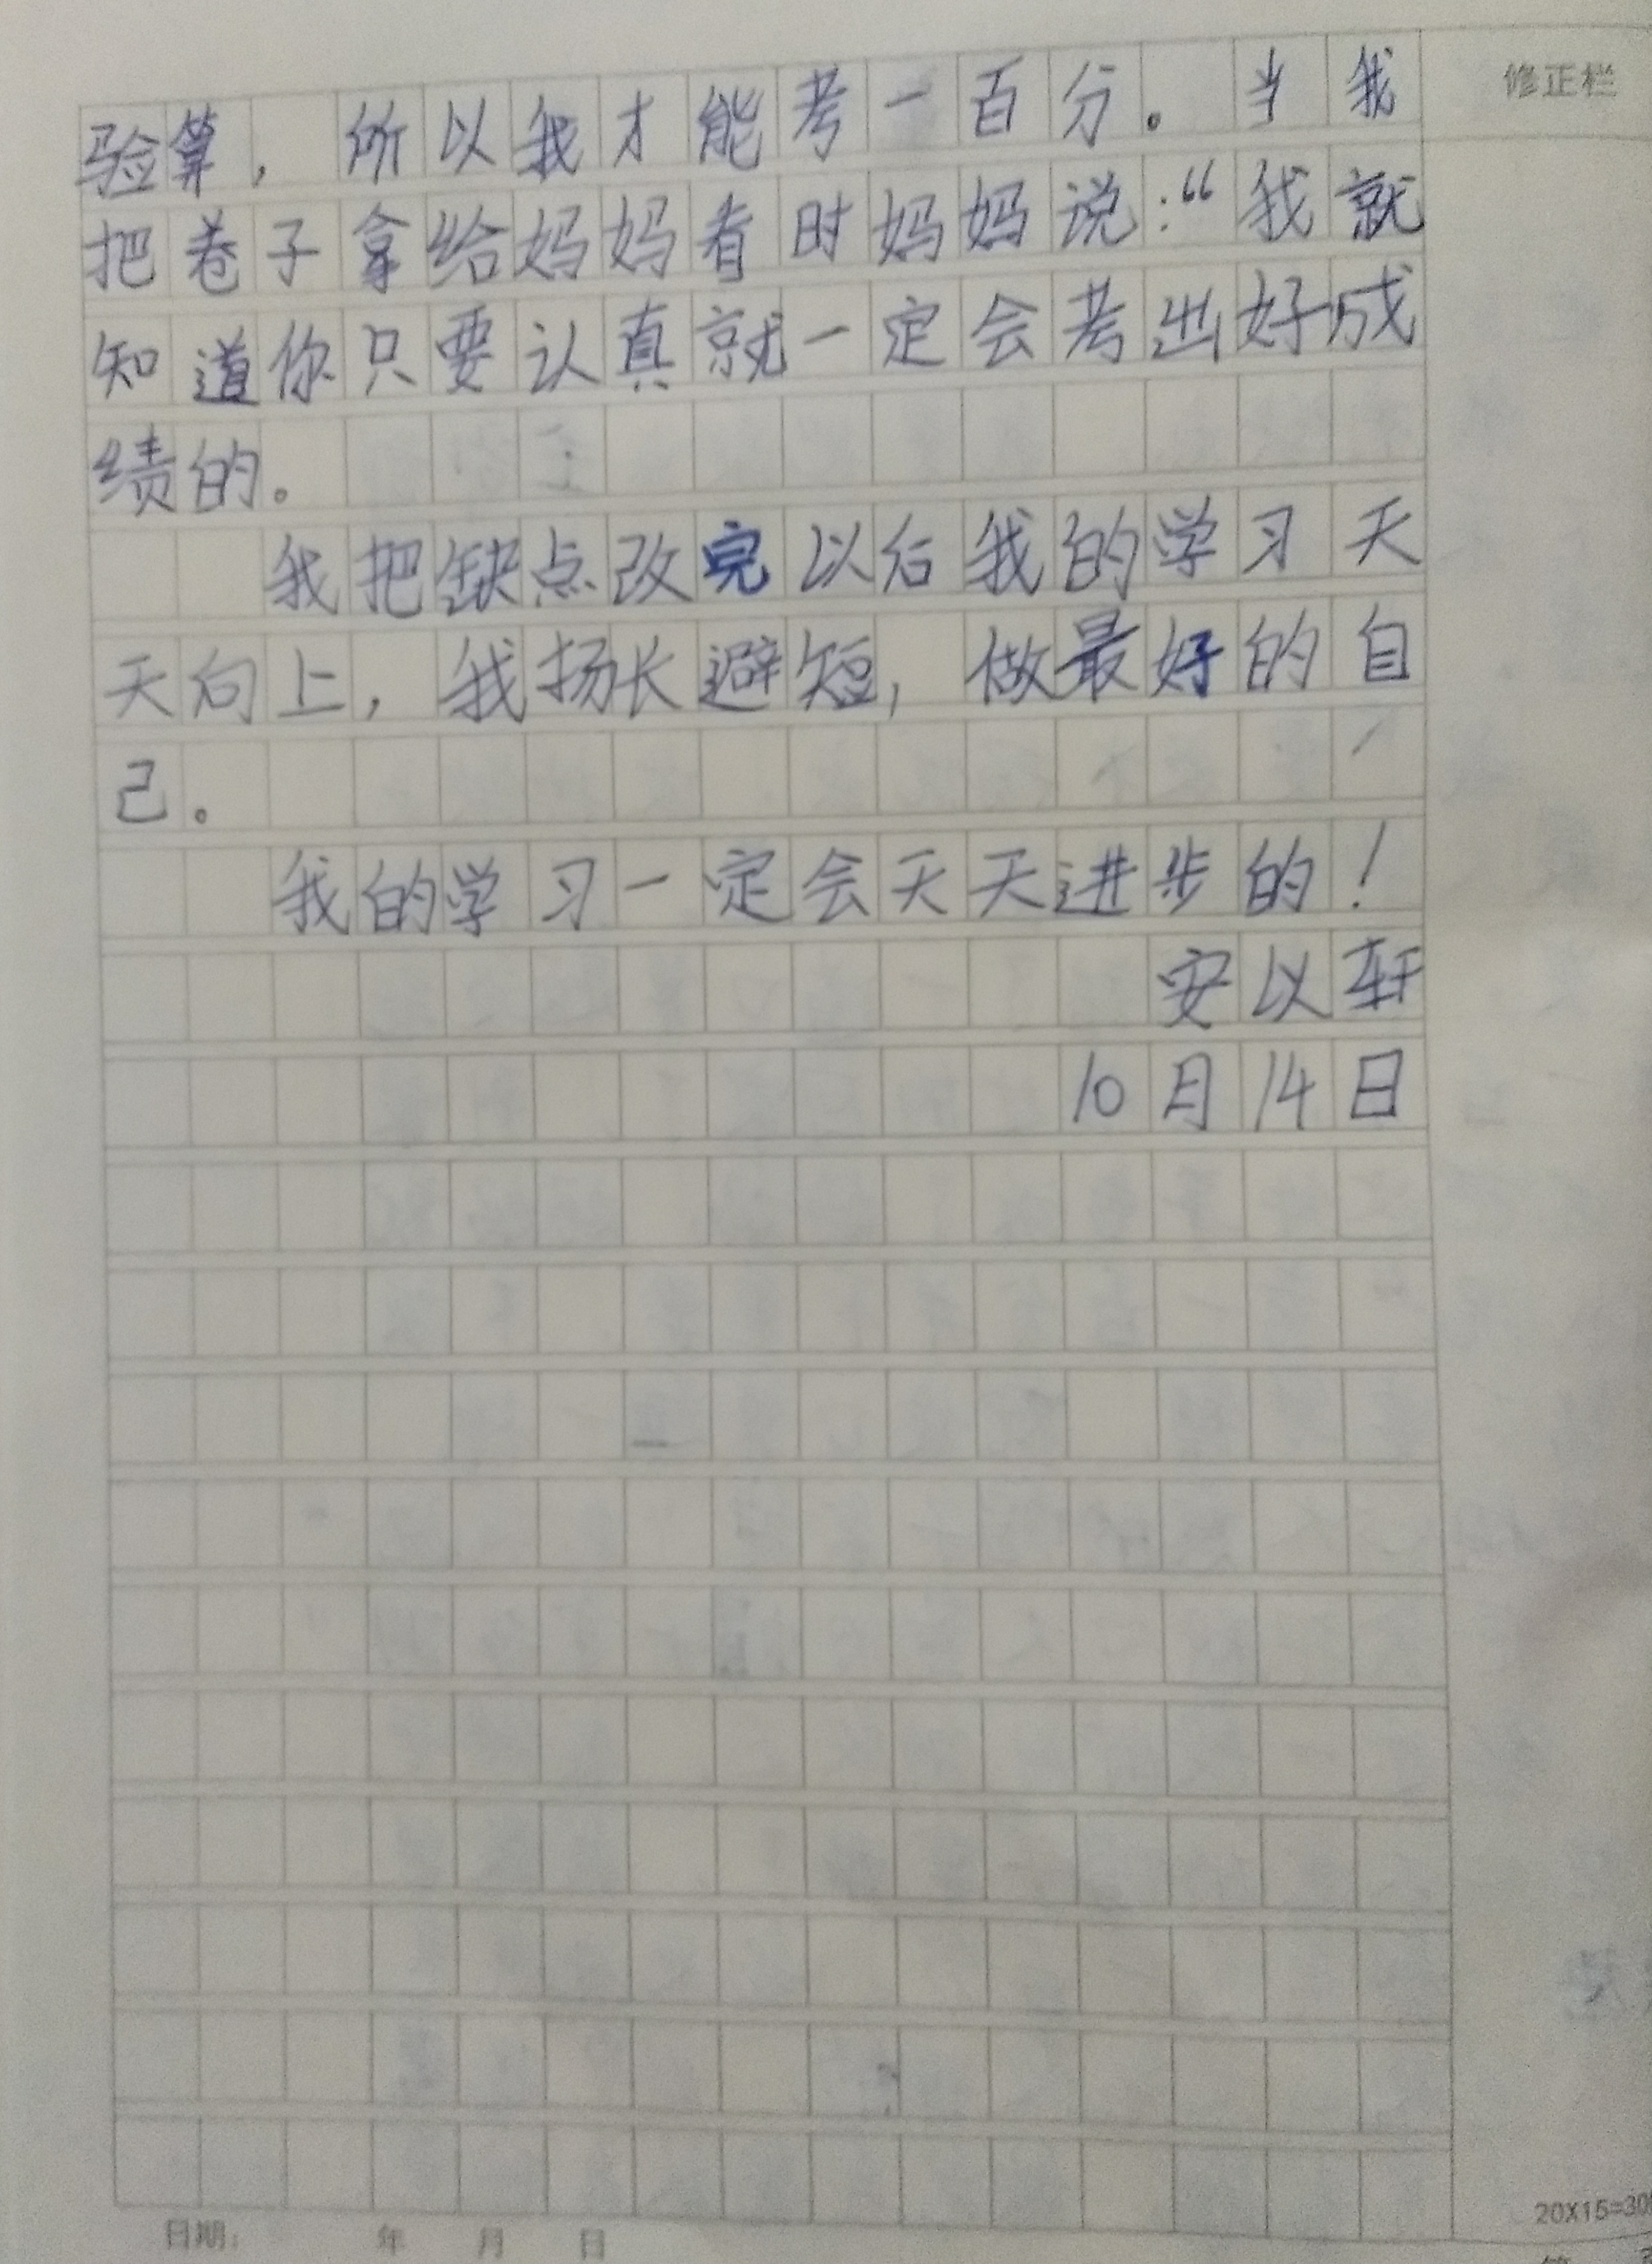 修正栏
验算，所以我才能考一百分。当我
把卷子拿给妈妈看时妈妈说：“我就
知道你只要认真就一定会考出好成
绩的。
我把缺点改完以后我的学习天
天向上，我扬长避短，做最好的自
己。
我的学习一定会天天进步的！
安以轩
10月14日
20X15=30
日期： 年 月 日